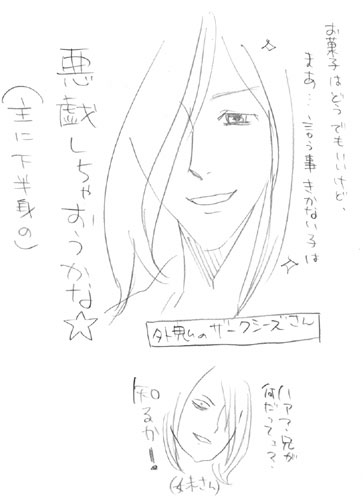 お菓子はどうでもいいけど、
まあ…、言う事きかない子は
悪戯しちゃおうかな☆
(主に下半身の)
外見のザークシーズさん
ハァ?兄が
何だってェ?
知るかー!
(妹さん)